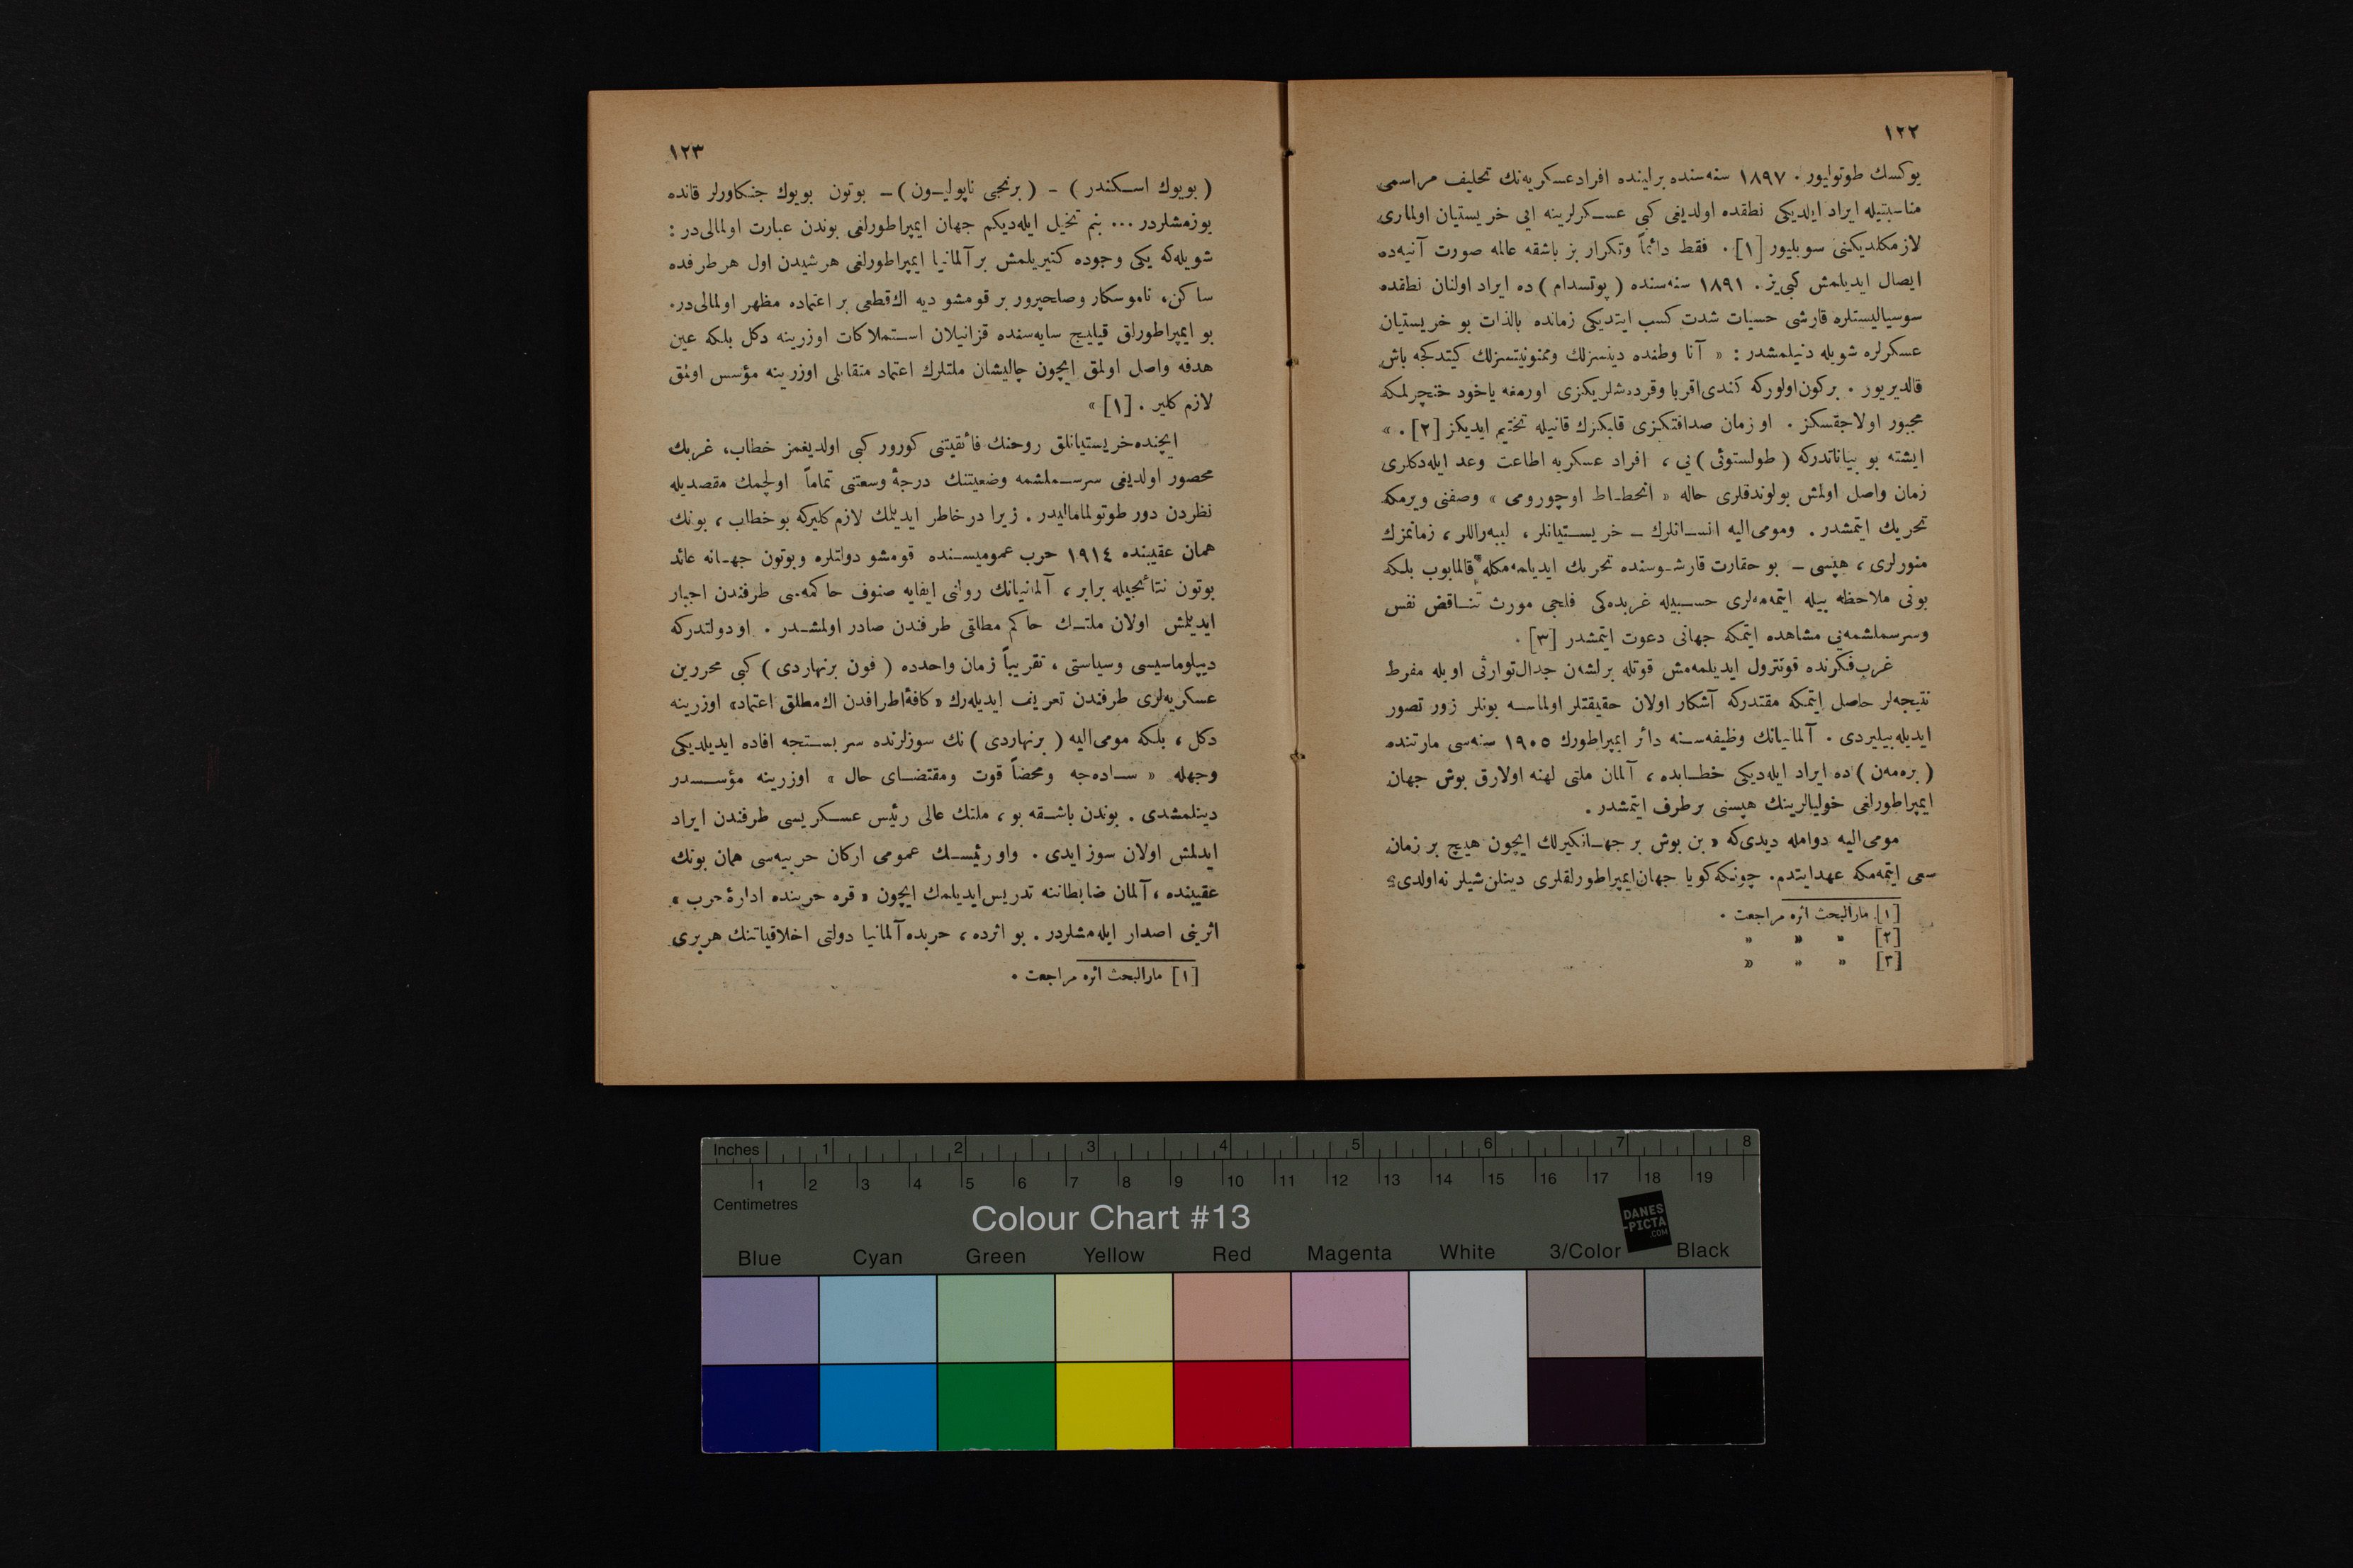 ١٢٢
يوكسك طوتوليور. ١٨٩٧ سنه‌سنده براينده افراد عسكريه‌نك تحليف مراسمى
مناسبتيله ايراد ايلديكى نطقده اولديغى كبى عسكرلرينه ايى خريستيان اولمارى
لازمكلديكنى سويليور [١]. فقط دائماً وتكرار بز باشقه عالمه صورت آتيه‌ده
ايصال ايديلمش كبى‌يز. ١٨٩١ سنه‌سنده (پوتسدام) ده ايراد اولنان نطقده
سوسياليستلره قارشى حسيات شدت كسب ايتديكى زمانده بالذات بو خريستيان
عسكرلره شويله دنيلمشدر: « آنا وطنده دينسزلك وممنونيتسزلك كيتدكجه باش
قالديريور. بركون اولوركه كندى اقربا وقردهشلريكزى اورمغه ياخود خنچرلمكه
مجبور اولاجقسكز. او زمان صداقتكزى قلبكزك قانيله تختيم ايديكز [٢]. »
ايشته بو بياناتدركه (طولستوئى) يى، افراد عسكريه اطاعت وعد ايله‌دكلرى
زمان واصل اولمش بولوندقلرى حاله « انحطاط اوچورومى » وصفنى ويرمكه
تحريك ايتمشدر. ومومى‌اليه انسانلرك ـ خريستيانلر، ليبه‌راللر، زمانمزك
منورلرى، هپسى ـ بو حقارت قارشوسنده تحريك ايديلمه‌مكله قالمايوب بلكه
بونى ملاحظه بيله ايتمه‌مه‌لرى حسبيله غربده‌كى فلجى مورث تناقض نفس
وسرسملشمه‌يى مشاهده ايتمكه جهانى دعوت ايتمشدر [٣].
غرب فكرنده قونترول ايديلمه‌مش قوتله برلشه‌ن جدال توارثى اويله مفرط
نتيجه‌لر حاصل ايتمكه مقتدركه آشكار اولان حقيقتلر اولماسه بونلر زور تصور
ايديله‌بيليردى. آلمانيانك وظيفه‌سنه دائر ايمپراطورك ١٩٠٥ سنه‌سى مارتنده
(بره‌مه‌ن) ده ايراد ايله‌ديكى خطابده، آلمان ملتى لهنه اولارق بوش جهان
ايمپراطورلغى خوليالرينك هپسنى برطرف ايتمشدر.
مومى‌اليه دوامله ديدى‌كه « بن بوش بر جهانكيرلك ايچون هيچ بر زمان
سعى ايتمه‌مكه عهد ايتدم. چونكه كويا جهان ايمپراطورلقلرى دينلن شيلر نه اولدى؟
[١] مارالبحث اثره مراجعت.
[٢] » » »
[٣] » » »
١٢٣
(بويوك اسكندر) ـ (برنجى ناپوليون) ـ بوتون بويوك جنكاورلر قانده
يوزمشلردر... بنم تخيل ايله‌ديكم جهان ايمپراطورلغى بوندن عبارت اولمالى‌در:
شويله‌كه يكى وجوده كتيريلمش بر آلمانيا ايمپراطورلغى هر شيدن اول هر طرفده
ساكن، ناموسكار وصلحپرور بر قومشو ديه اك قطعى بر اعتماده مظهر اولمالى‌در.
بو ايمپراطورلق قيليج سايه‌سنده قزانيلان استملاكات اوزرينه دكل بلكه عين
هدفه واصل اولمق ايچون چاليشان ملتلرك اعتماد متقابلى اوزرينه مؤسس اولمق
لازم كلير. [١] »
ايچنده خريستيانلق روحنك فائقيتنى كورور كبى اولديغمز خطاب، غربك
محصور اولديغى سرسملشمه وضعيتنك درجهٔ وسعتنى تماماً اولچمك مقصديله
نظردن دور طوتولمامالیدر. زيرا درخاطر ايديلمك لازم كليركه بو خطاب، بونك
همان عقيبنده ١٩١٤ حرب عموميسنده قومشو دولتلره وبوتون جهانه عائد
بوتون نتائجيله برابر، آلمانيانك رولنى ايفايه صنوف حاكمه‌سى طرفندن اجبار
ايديلمش اولان ملتك حاكم مطلقى طرفندن صادر اولمشدر. او دولتدركه
ديپلوماسيسى وسياستى، تقريباً زمان واحدده (فون برنهاردى) كبى محررين
عسكريه‌لرى طرفندن تعريف ايديله‌رك « كافهٔ اطرافدن اك مطلق اعتماد » اوزرينه
دكل، بلكه مومى‌اليه (برنهاردى) نك سوزلرنده سربستجه افاده ايديلديكى
وجهله « ساده‌جه ومحضاً قوت ومقتضاى حال » اوزرينه مؤسسدر
دينلمشدى. بوندن باشقه بو، ملتك عالى رئيس عسكريسى طرفندن ايراد
ايدلمش اولان سوز ايدى. واو رئيسك عمومى اركان حربيه‌سى همان بونك
عقيبنده، آلمان ضابطاننه تدريس ايديلمك ايچون « قره حربنده ادارهٔ حرب »
اثرينى اصدار ايله‌مشلردر. بو اثرده، حربده آلمانيا دولتى اخلاقياتنك هر برى
[١] مارالبحث اثره مراجعت.
Inches 1 2 3 4 5 6 7 8
1 2 3 4 5 6 7 8 9 10 11 12 13 14 15 16 17 18 19
Centimetres
Colour Chart #13
DANES
-PICTA
.COM
Blue Cyan Green Yellow Red Magenta White 3/Color Black